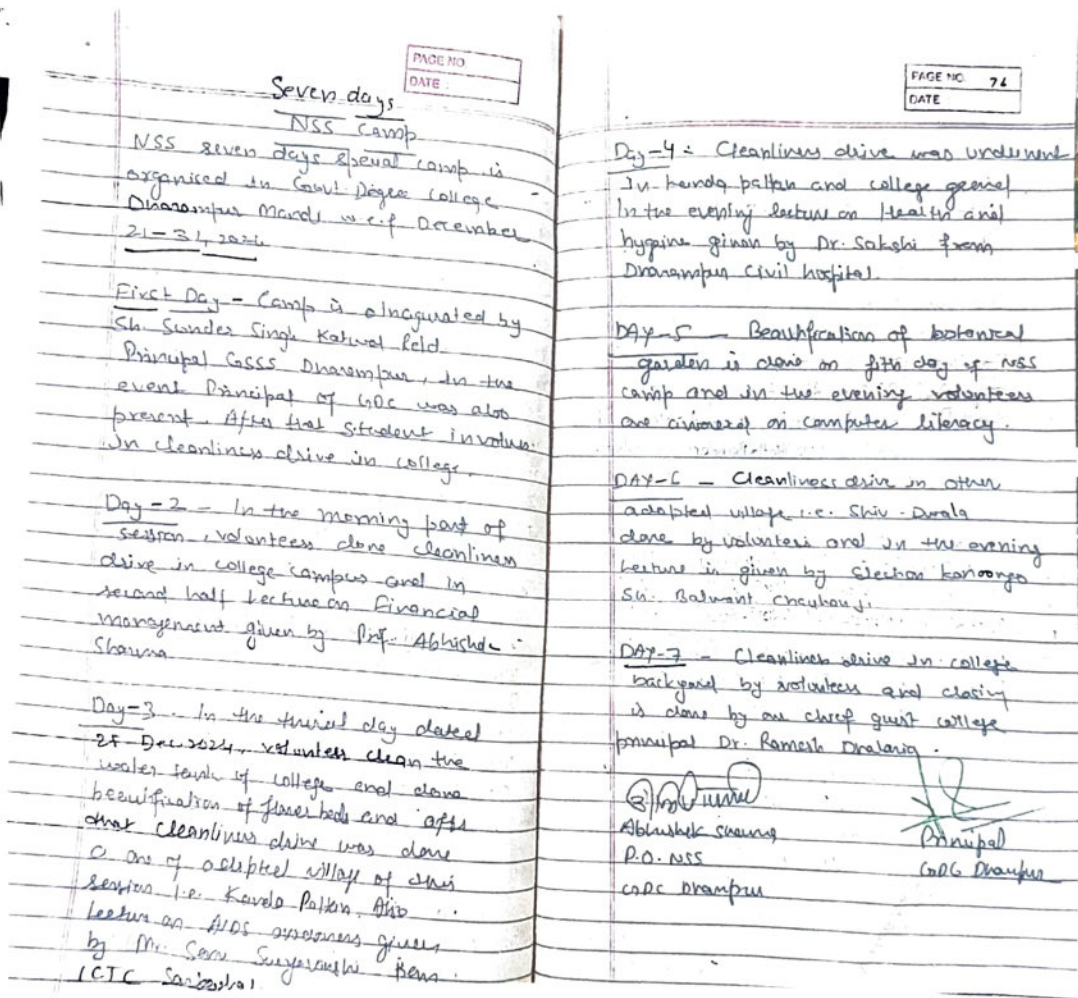 PAGE NO
DATE
Seven days
NSS Camp
NSS seven days special camp is
organised in Govt Degree College
Dharampur Mandi w.e.f December
First Day - Camp is Inagurated by
Sh. Sunder Singh
Principal GSSS Dharampur, In the
event Principal of GDC was also
present. After that Student involves
In cleanliness drive in college.
Day-2 - In the morning part of
session, volunteers done cleanliness
drive in college campus and in
second half Lecture on Financial
management given by Prof. Abhishek
Sharma
Day-3 - In the third day dated
Dec 2024, volunteers clean the
water tank of college and done
beautification of flower beds and after
that cleanliness drive was done
one of adapted village of this
session i.e. Paltan. Also
Lecture on AIDS awareness given
by Mr.
ICTC
PAGE NO. 76
DATE
Day-4 : Cleanliness drive was underwent
In paltan and college
In the evening lecture on Health and
hygaine given by Dr. Sakshi from
Dharampur Civil hospital.
DAY-5 - Beautification of botanical
garden is done on fifth day of NSS
camp and in the evening volunteers
are on computer literacy.
DAY-6 - Cleanliness drive in other
adapted village i.e. Shiv-Dwala
done by volunteers and in the evening
Lecture is given by Election kanoongo
Sh. Balwant
DAY-7 - Cleanliness drive in college
backyard by volunteers and closing
is done by our chief guest college
principal Dr. Ramesh
Abhishek Sharma
P.O. NSS
GDC Dharampur
Principal
GDC Dharampur